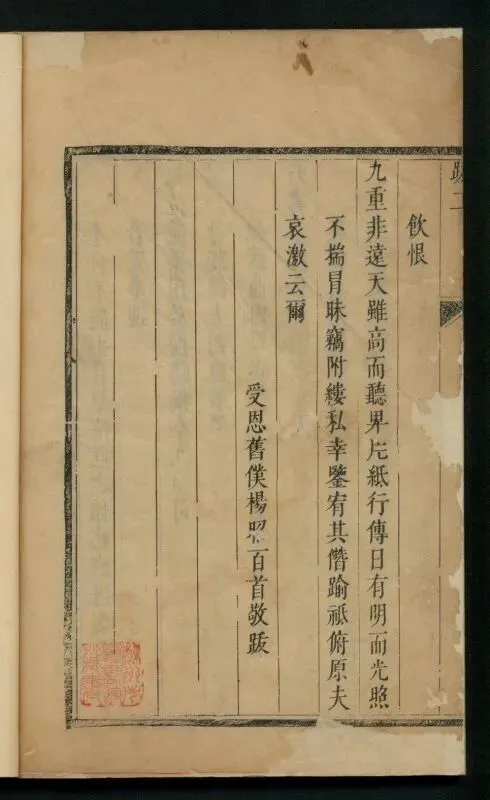 跋二
飲恨
九重非遠天雖高而聽卑片紙行傳日有明而光照
不揣冒昧竊附縷私幸鑒宥其僭踰祗俯原夫
哀激云爾
受恩舊僕楊百首敬跋